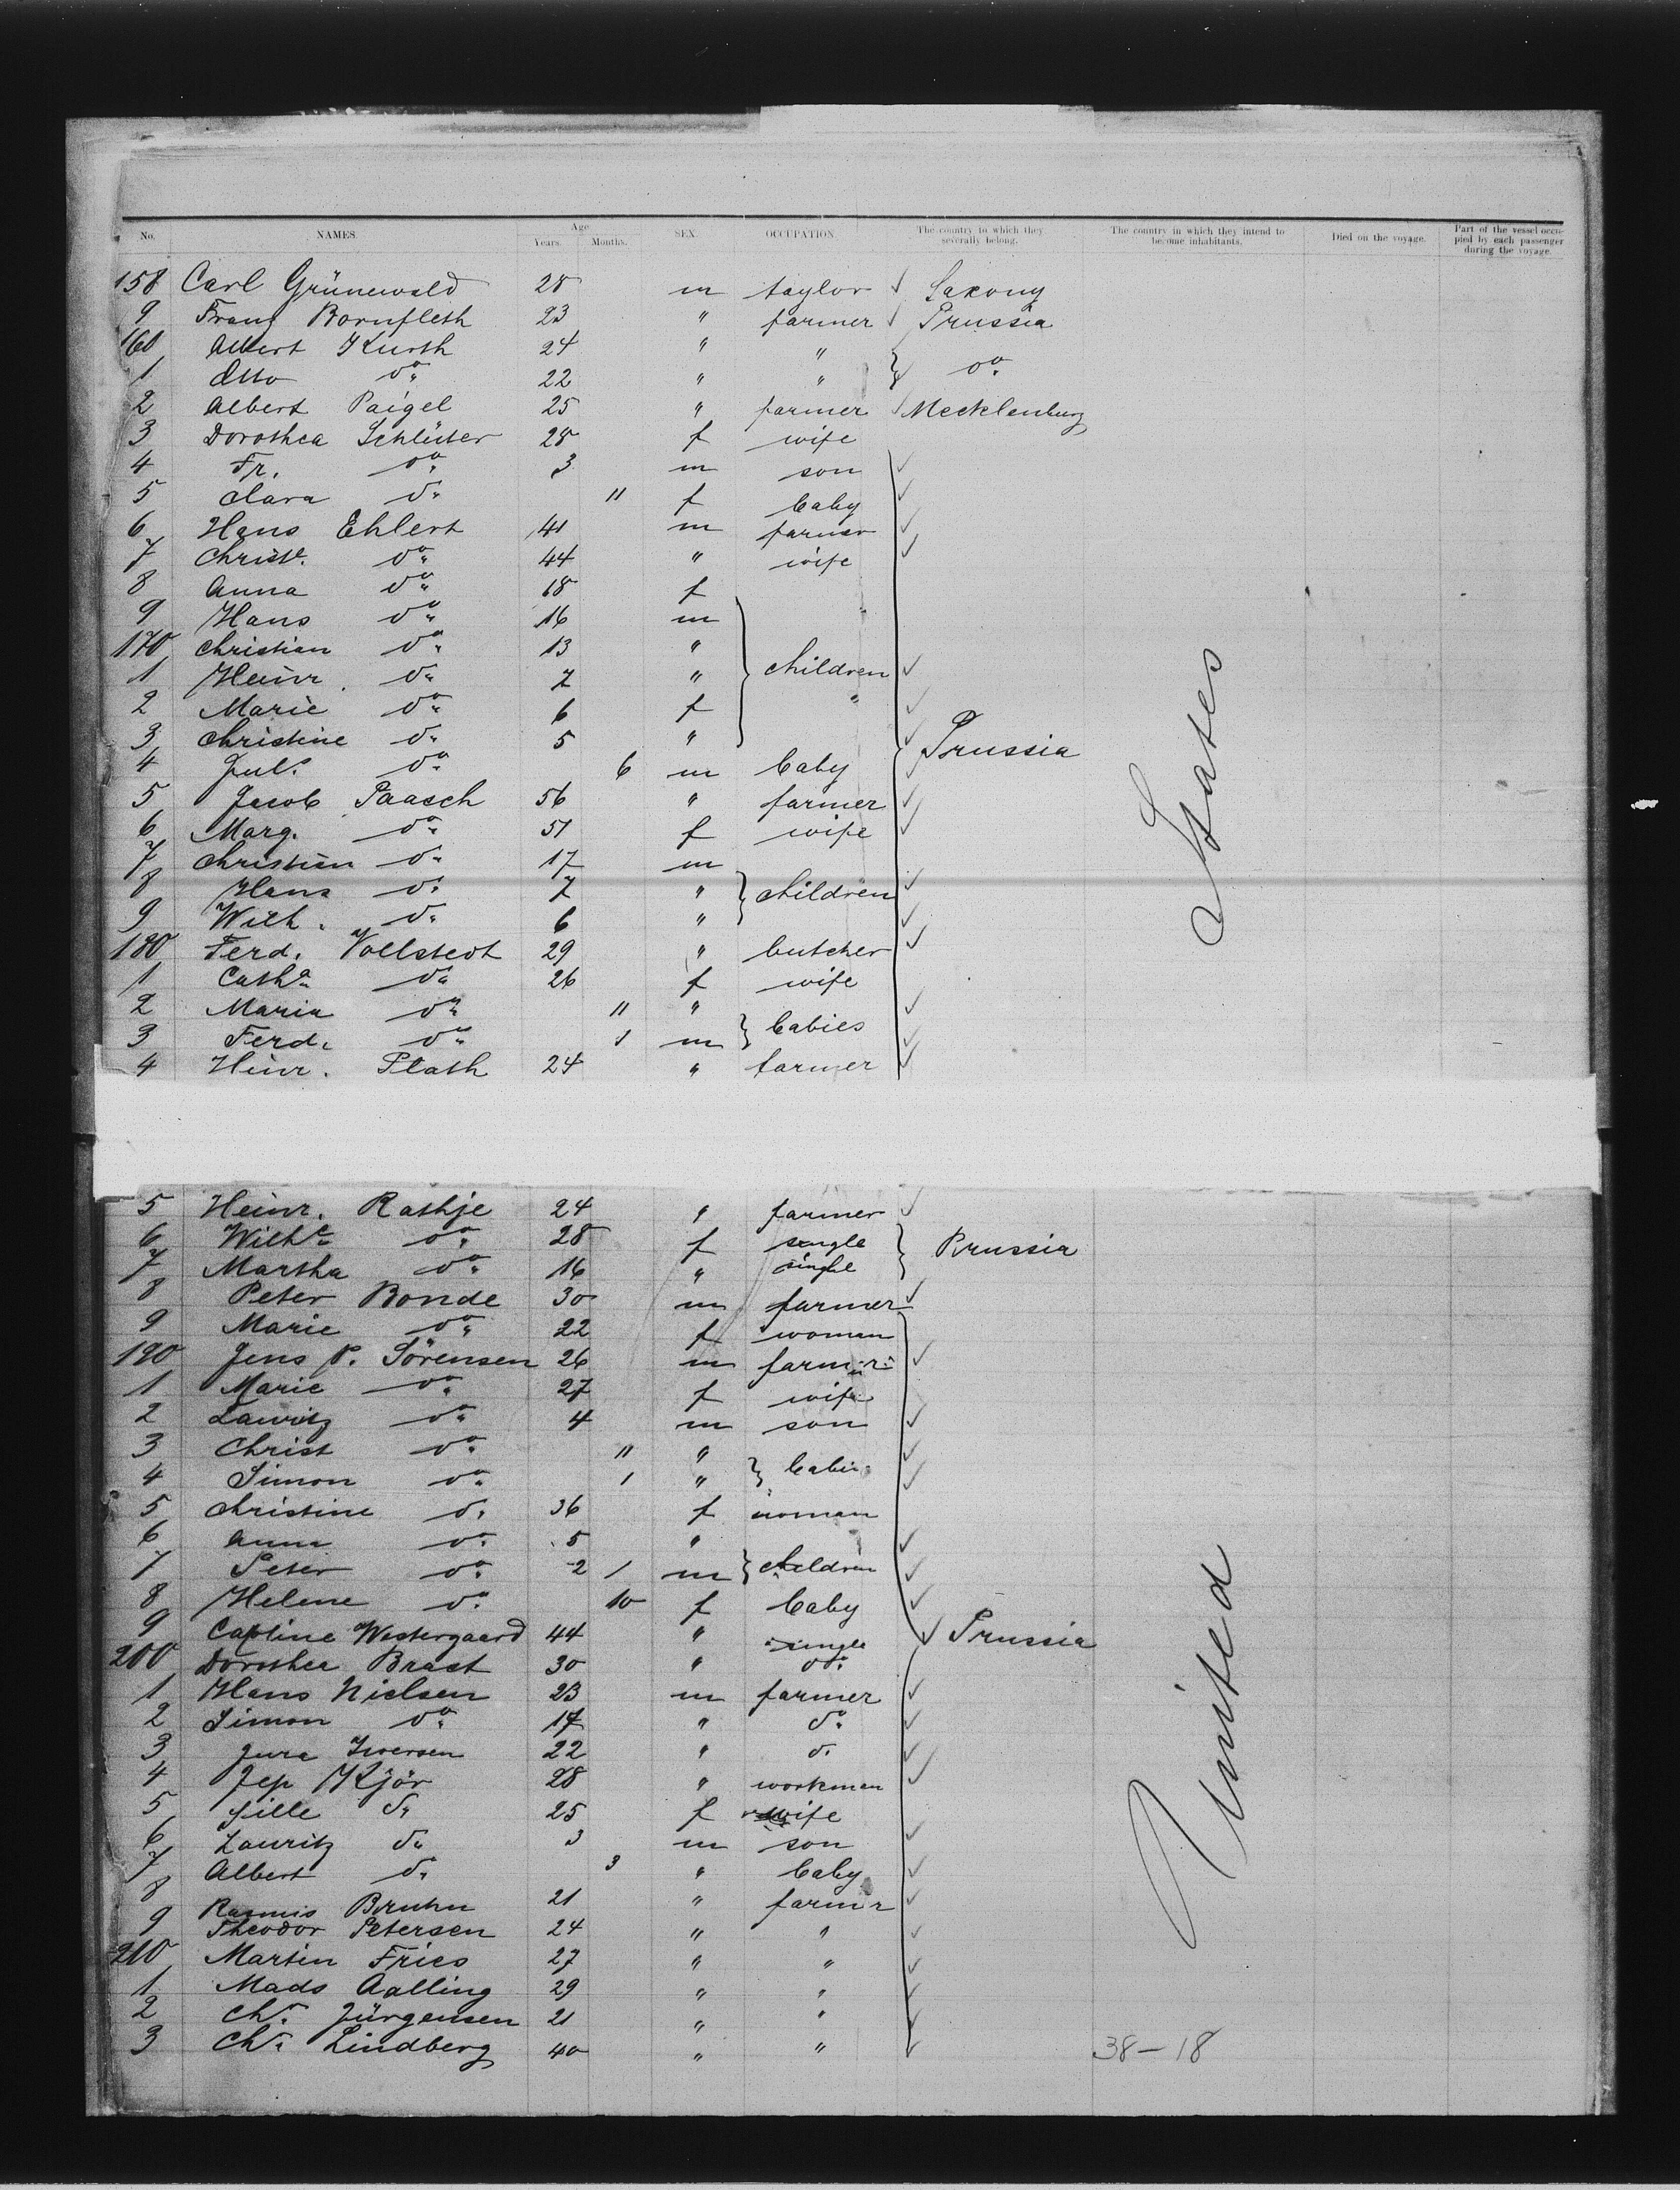 No. NAMES. Age Years. Months. SEX. OCCUPATION. The country to which they severally belong. The country in which they intend to become inhabitants. Died on the voyage. Part of the vessel occupied by each passenger during the voyage.
158 Carl Grünewald 28 m taylor Saxony
9 Franz Bornfleth 23 " farmer Prussia
160 Albert Kurth 24 " "
1 Otto do. 22 " " do.
2 Albert Paigel 25 " farmer Mecklenburg
3 Dorothea Schlüter 28 f wife
4 Fr. do. 3 m son
5 Clara do. 11 f baby
6 Hans Ehlert 41 m farmer
7 Christe. do. 44 " wife
8 Anna do. 18 f
9 Hans do. 16 m
170 Christian do. 13 "
1 Heinr. do. 7 " children
2 Marie do. 6 f "
3 Christine do. 5 " Prussia
4 Jul. do. 6 m baby
5 Jacob Paasch 56 " farmer
6 Marg. do. 51 f wife
7 Christian do. 17 m
8 Hans do. 7 " children
9 Wilh. do. 6 "
180 Ferd. Vollstedt 29 " butcher
1 Catha. do. 26 f wife
2 Maria do. 11 " babies
3 Ferd. do. 1 m
4 Heinr. Plath 24 " farmer
5 Heinr. Rathje 24 " farmer
6 Wilhe. do. 28 f single Prussia
7 Martha do. 16 " single
8 Peter Bonde 30 m farmer
9 Marie do. 22 f woman
190 Jens P. Sörensen 26 m farmer
1 Marie do. 27 f wife
2 Lauritz do. 4 m son
3 Christ do. 11 "
4 Simon do. 1 "
5 Christine do. 36 f woman
6 Anna do. 5 "
7 Peter do. 2 1 m children
8 Helene do. 10 f baby
9 Caroline Westergaard 44 " single Prussia
200 Dorothea Brast 30 " do.
1 Hans Nielsen 23 m farmer
2 Simon do. 17 " do.
3 Jura Iwersen 22 " do.
4 Jep Kjör 28 " workman
5 Sille do. 25 f wife
6 Lauritz do. 3 m son
7 Albert do. 3 " baby
8 Rasmus Bruhn 21 " farmer
9 Theodor Petersen 24 " "
210 Martin Fries 27 " "
1 Mads Aalling 29 " "
2 Chr. Jürgensen 21 " "
3 Chr. Lindberg 40 " "
United States
38-18